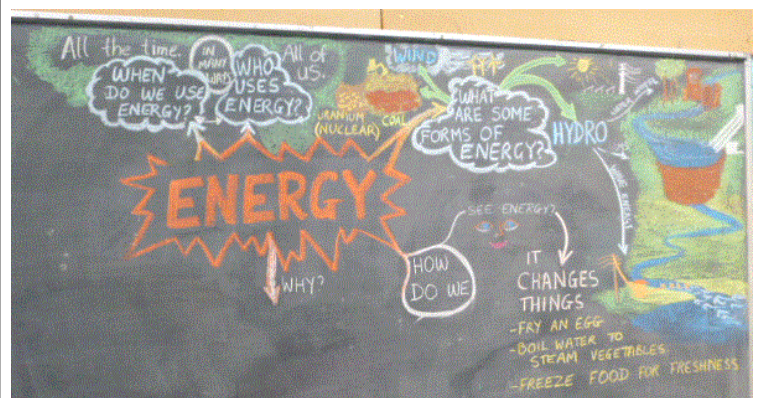 All the time.
IN
MANY
WAYS
All of
us.
WHEN
DO WE USE
ENERGY?
WHO
USES
ENERGY?
WIND
URANIUM
(NUCLEAR)
COAL
WHAT
ARE SOME
FORMS OF
ENERGY?
HYDRO
ENERGY
WHY?
HOW
DO WE
SEE ENERGY?
IT
CHANGES
THINGS
-FRY AN EGG
-BOIL WATER TO
STEAM VEGETABLES
-FREEZE FOOD FOR FRESHNESS